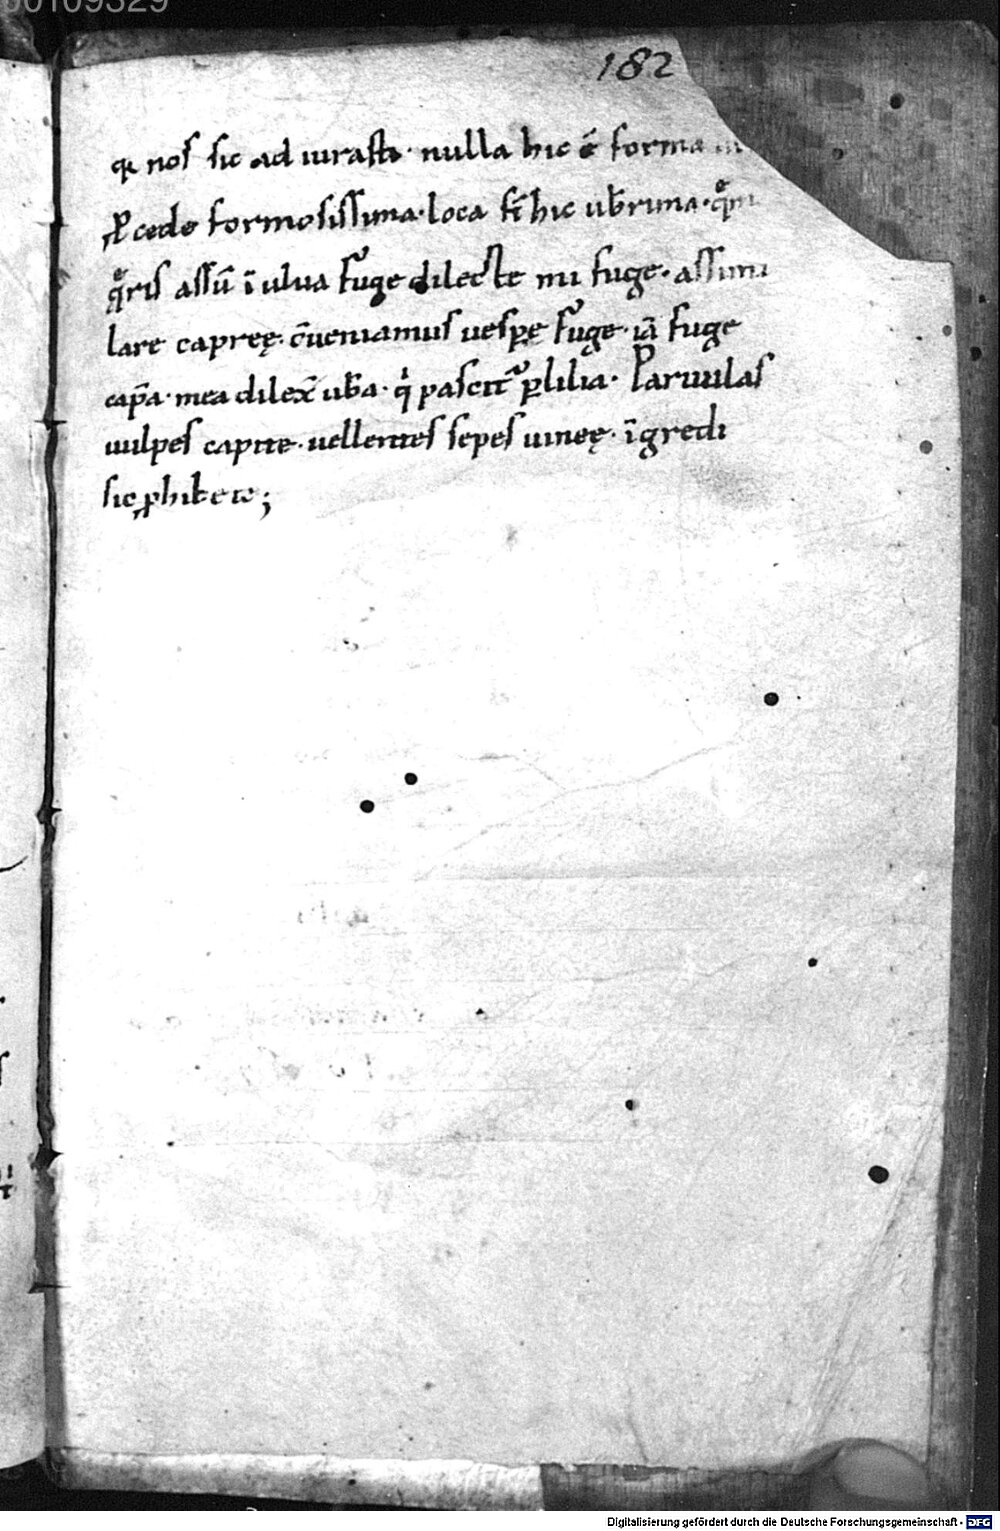 00109329
182
qꝛ nos sic ad iurasti · nulla hic ē forma
Ꝓcede formosissima · loca st̄ hic ub̄rima ·
q̄ris assū ī ulua fuge dilecte mi fuge · assimi
lare capreę · c̄ueniamus uesꝑe fuge · iā fuge
cap̄a · mea dilex̄ ub̄a · qͥ pascit᷑ ꝑ lilia · Paruulas
uulpes capite · uellentes sepes uineę · īgredi
sic ꝓhibete ;
Digitalisierung gefördert durch die Deutsche Forschungsgemeinschaft - DFG